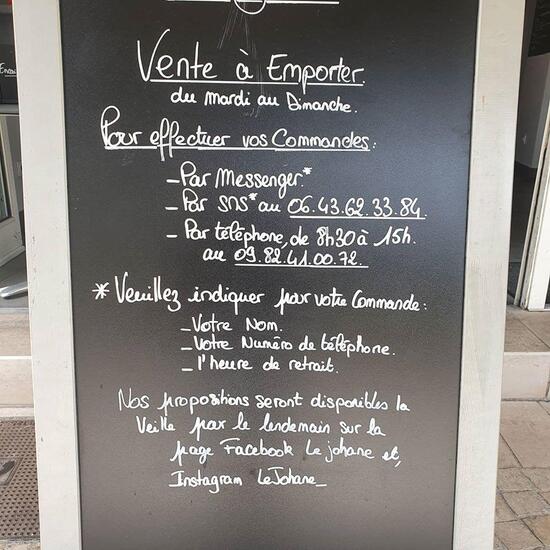 Vente à Emporter.
du Mardi au Dimanche.
Pour effectuer vos Commandes:
- Par Messenger.*
- Par SMS* au 06.43.62.33.84.
- Par téléphone, de 8h30 à 15h.
au 09.82.41.00.72.
* Veuillez indiquer pour votre Commande:
- Votre Nom.
- Votre Numéro de téléphone.
- l'heure de retrait.
Nos propositions seront disponibles la
Veille par le lendemain sur la
page Facebook Le johane et,
Instagram LeJohane_